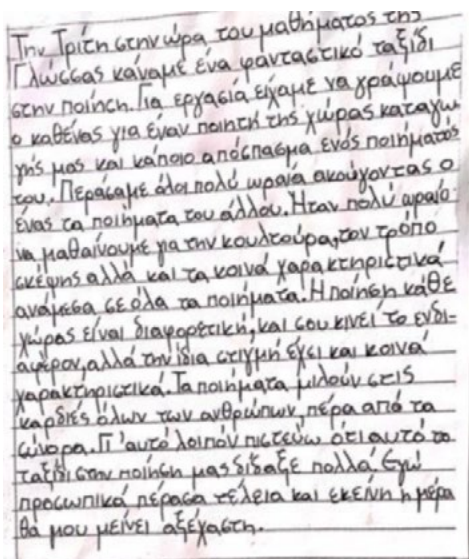 Την Τρίτη στην ώρα του μαθήματος της
Γλώσσας κάναμε ένα φανταστικό ταξίδι
στην ποίηση. Για εργασία είχαμε να γράψουμε
ο καθένας για έναν ποιητή της χώρας καταγω
γής μας και κάποιο απόσπασμα ενός ποιήματός
του. Περάσαμε όλοι πολύ ωραία ακούγοντας ο
ένας τα ποιήματα του άλλου. Ήταν πολύ ωραίο
να μαθαίνουμε για την κουλτούρα, τον τρόπο
σκέψης αλλά και τα κοινά χαρακτηριστικά
ανάμεσα σε όλα τα ποιήματα. Η ποίηση κάθε
χώρας είναι διαφορετική, και σου κινεί το ενδι-
αφέρον, αλλά την ίδια στιγμή έχει και κοινά
χαρακτηριστικά. Τα ποιήματα μιλούν στις
καρδιές όλων των ανθρώπων, πέρα από τα
σύνορα. Γι'αυτό λοιπόν πιστεύω ότι αυτό το
ταξίδι στην ποίηση μας δίδαξε πολλά. Εγώ
προσωπικά πέρασα τέλεια και εκείνη η μέρα
θα μου μείνει αξέχαστη.